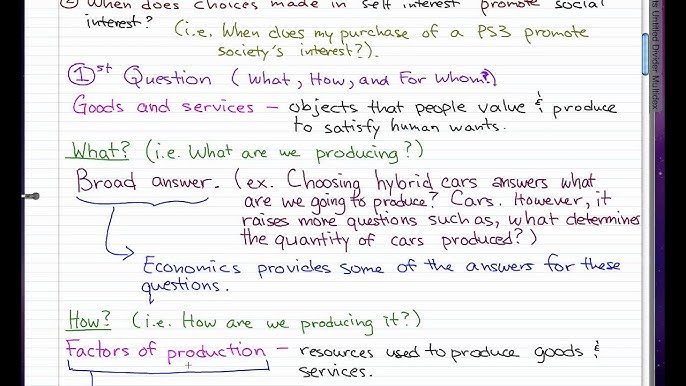 ② When does choices made in self interest promote social
interest?
(i.e. When does my purchase of a PS3 promote
society's interest?).
①st Question (What, How, and For Whom?)
Goods and services – objects that people value & produce
to satisfy human wants.
What? (i.e. What are we producing?)
Broad answer. (ex. Choosing hybrid cars answers what
are we going to produce? Cars. However, it
raises more questions such as, what determines
the quantity of cars produced?)
Economics provides some of the answers for these
questions.
How? (i.e. How are we producing it?)
Factors of production – resources used to produce goods &
services.
Untitled Divider Multidex